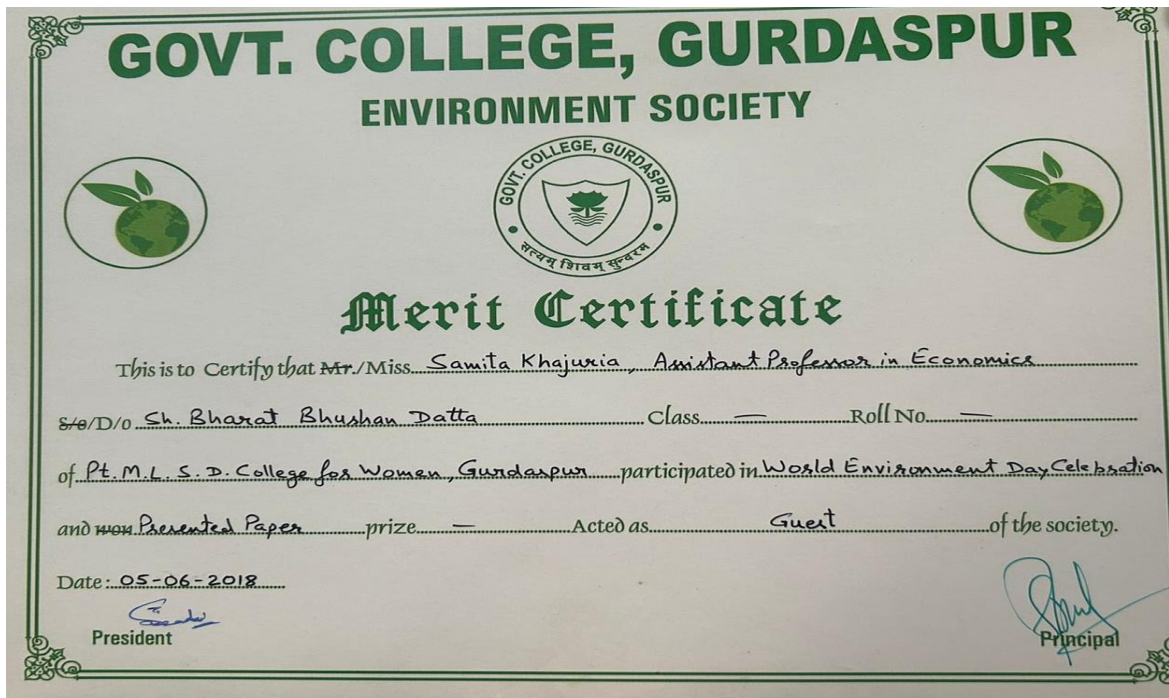 GOVT. COLLEGE, GURDASPUR
ENVIRONMENT SOCIETY
GOVT. COLLEGE, GURDASPUR
सत्यम् शिवम् सुन्दरम्
Merit Certificate
This is to Certify that Mr./Miss Samita Khajuria, Assistant Professor in Economics
S/o/D/o Sh. Bharat Bhushan Datta Class — Roll No. —
of Pt. M.L. S. D. College for Women, Gurdaspur participated in World Environment Day Celebration
and won Presented Paper prize — Acted as Guest of the society.
Date: 05-06-2018
President
Principal